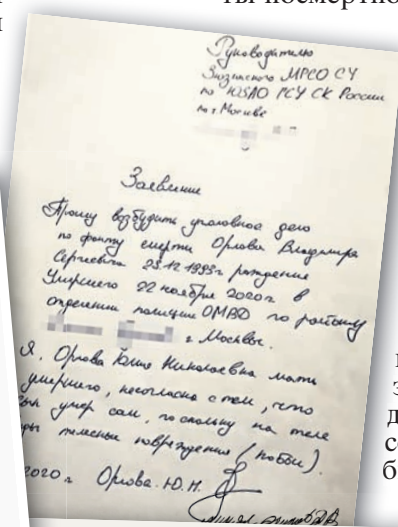 ты посмертно
Руководителю
Зюзинского МРСО СУ
по ЮЗАО ГСУ СК России
по г. Москве
Заявление
Прошу возбудить уголовное дело
по факту смерти Орлова Владимира
Сергеевича 23.12.1993г рождения
Умершего 22 ноября 2020г в
отделении полиции ОМВД по району
г. Москвы.
Я, Орлова Юлия Николаевна мать
умершего, несогласна с тем, что
сын умер сам, поскольку на теле
телесные повреждения (побои).
2020г Орлова. Ю.Н.